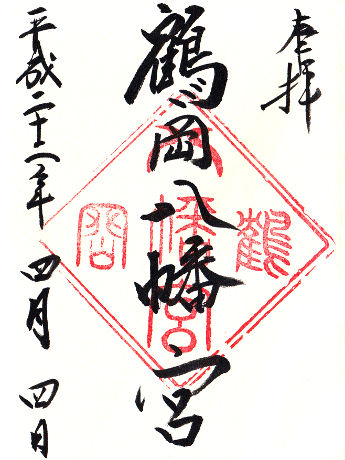 奉拝
鶴岡八幡宮
平成二十二年 四月 四日
鶴
岡
八幡宮